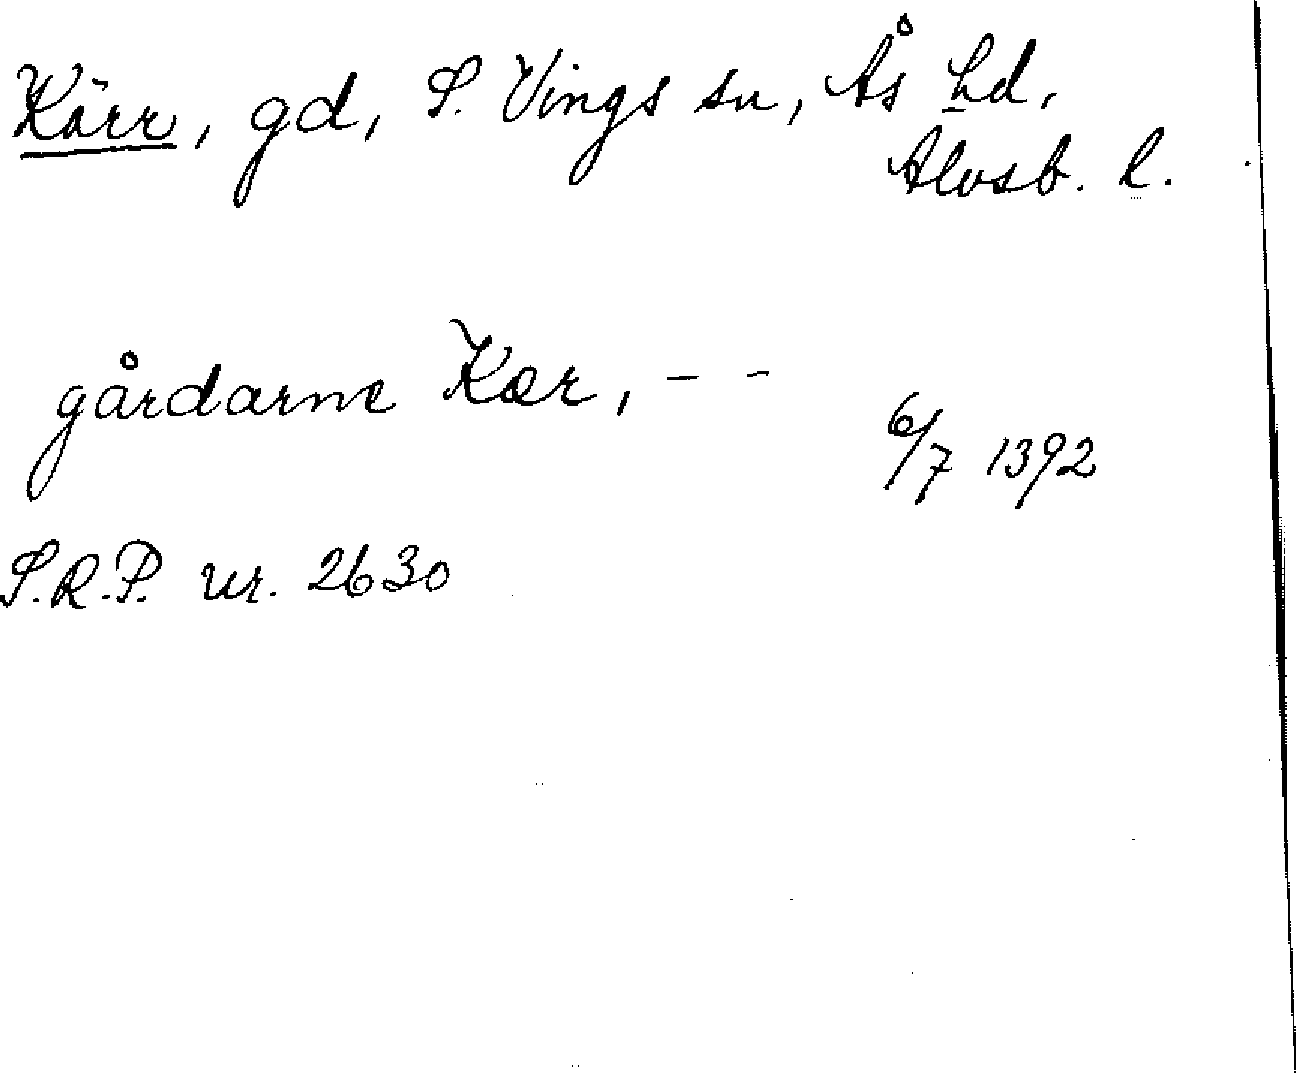 Kärr, gd, S. Vings sn, Ås hd,
Älvsb. l.
gårdarne Kær, - -
6/7 1392
S.R.P. nr. 2630